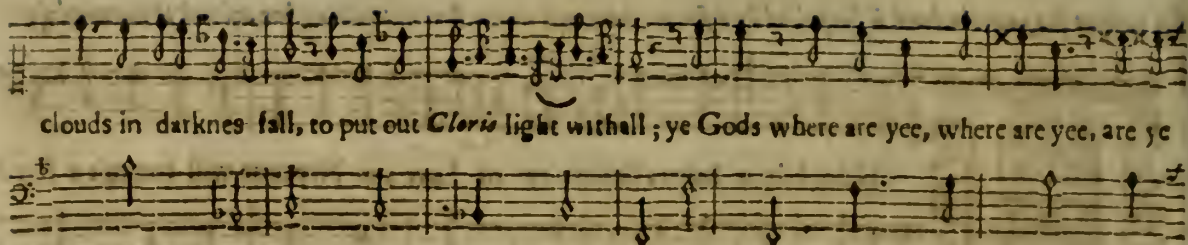 clouds in darknes fall, to put out Cloris light withall ; ye Gods where are yee, where are yee, are ye